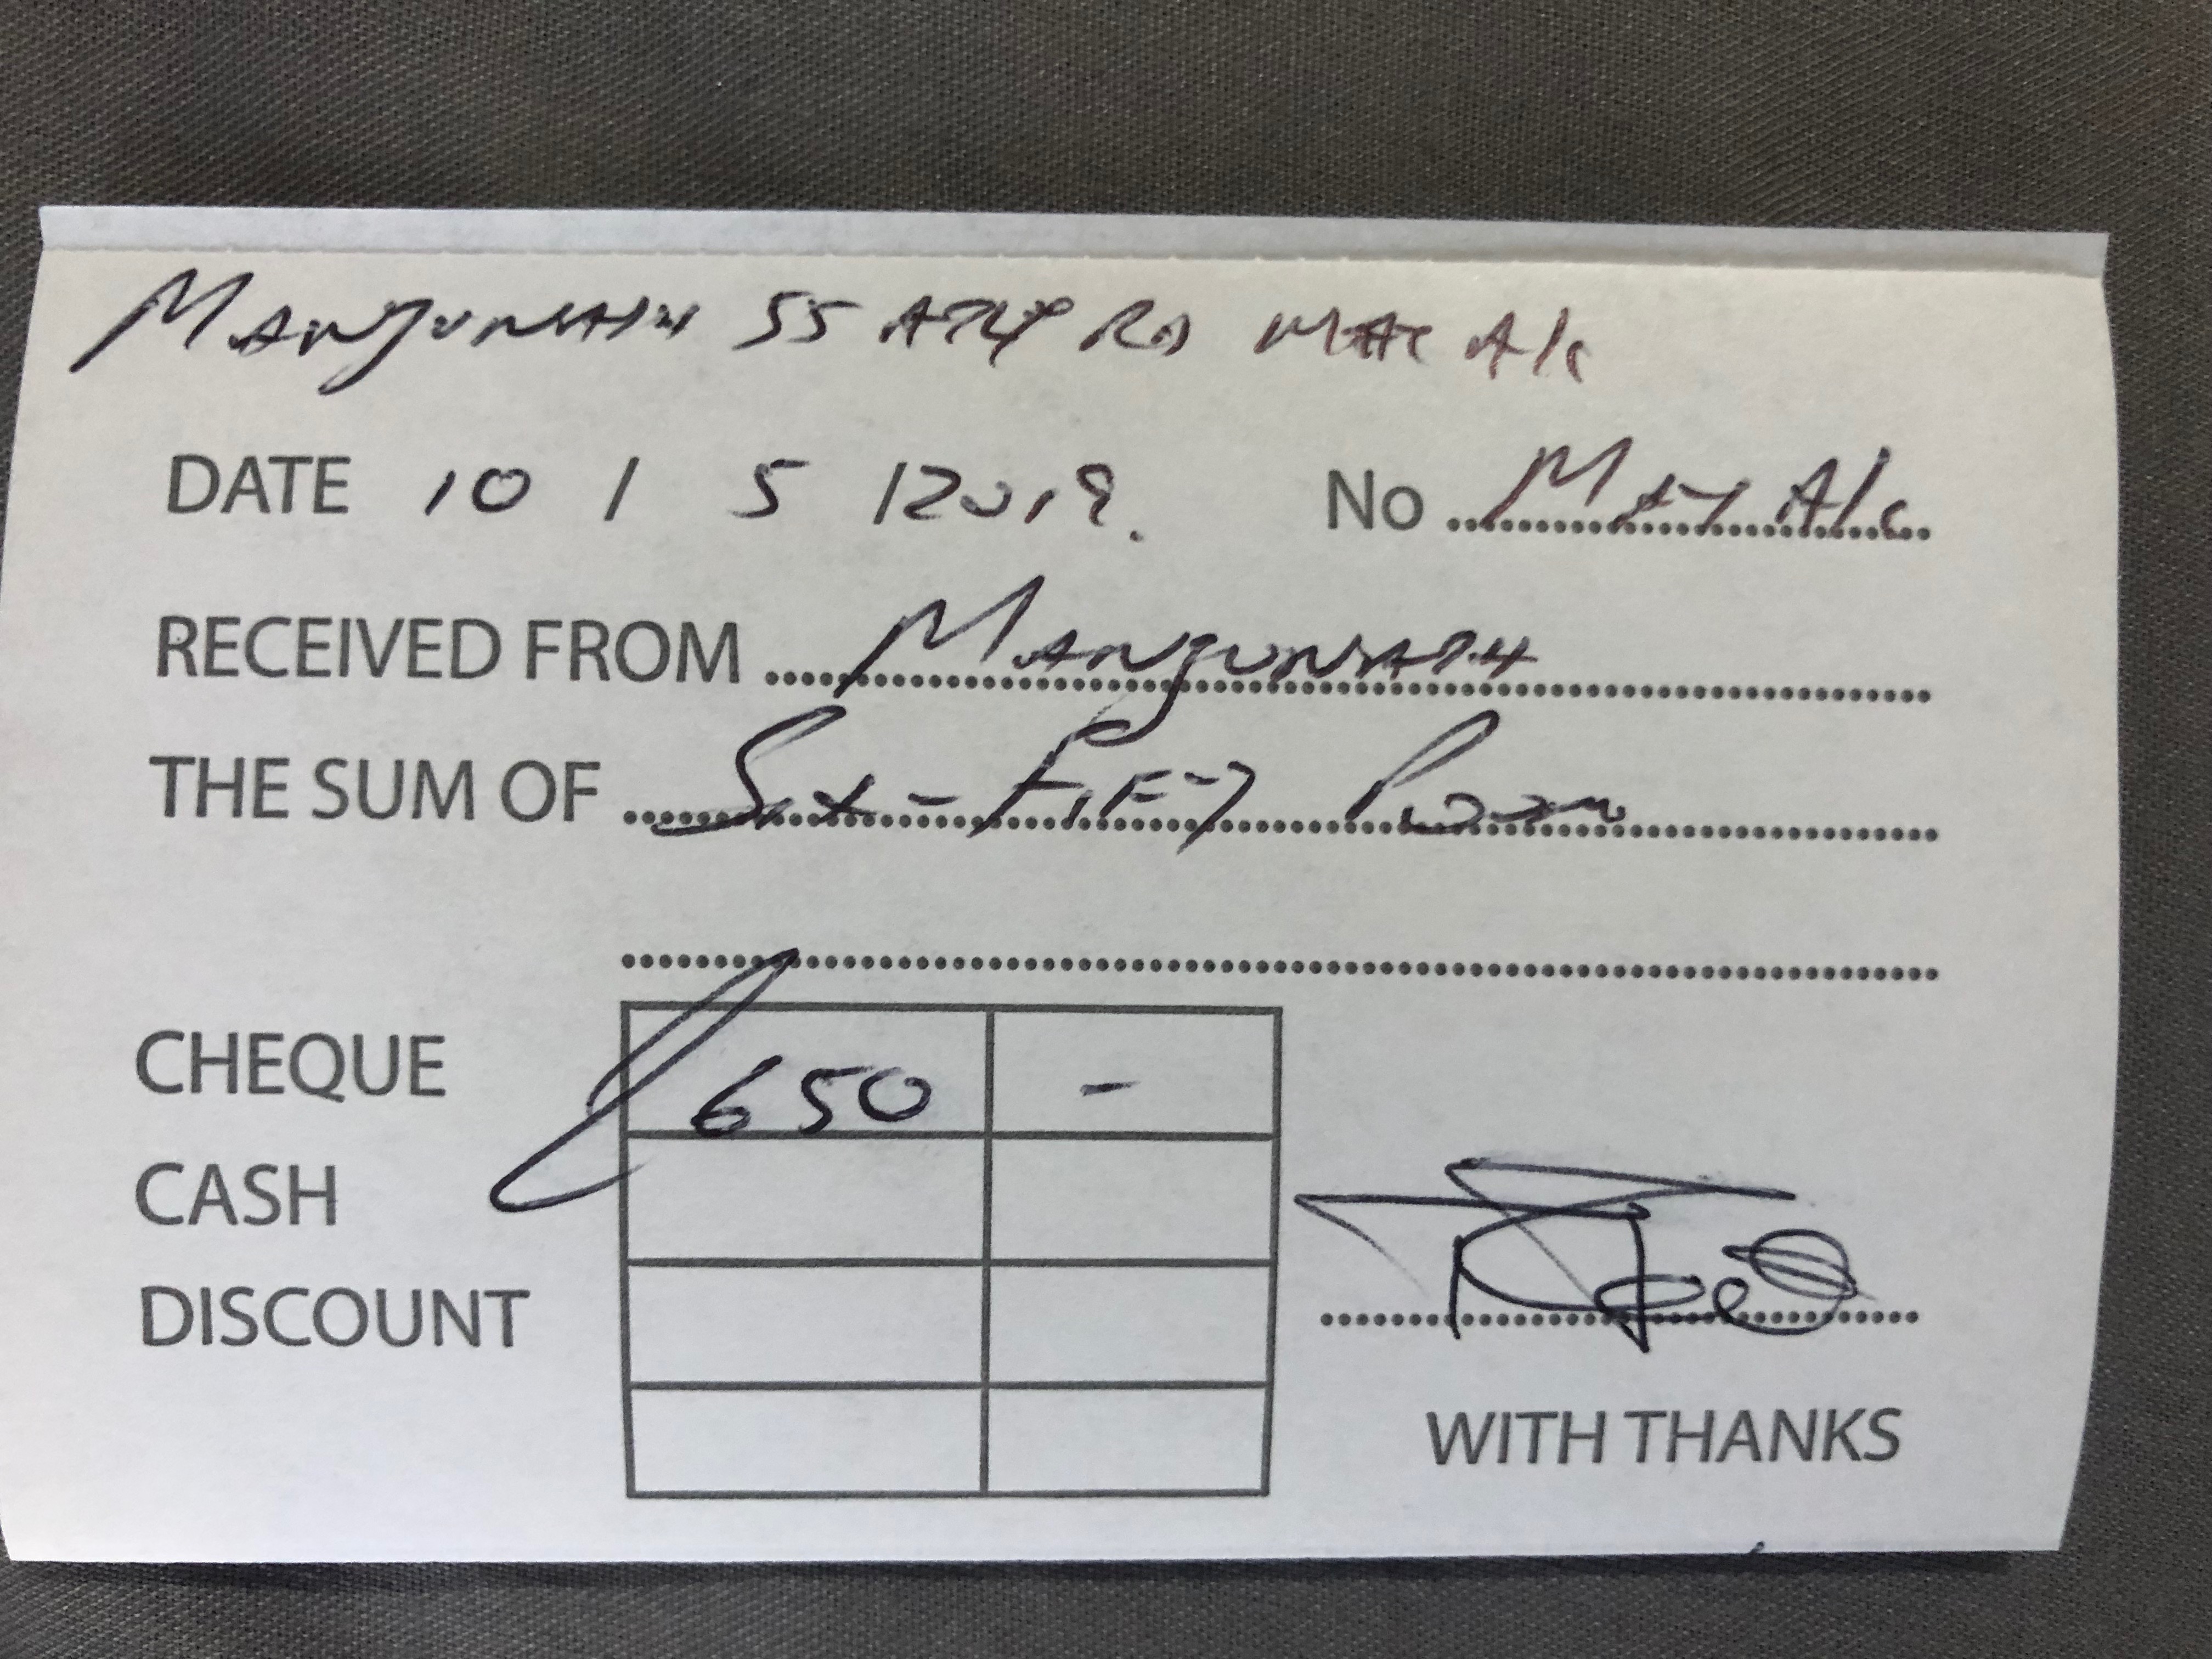 MANJUNATH 55 RD A/c
DATE 10 / 5 / 2019. No MAY A/c
RECEIVED FROM MANJUNATH
THE SUM OF Six - Fifty
CHEQUE 650 -
CASH
DISCOUNT
WITH THANKS